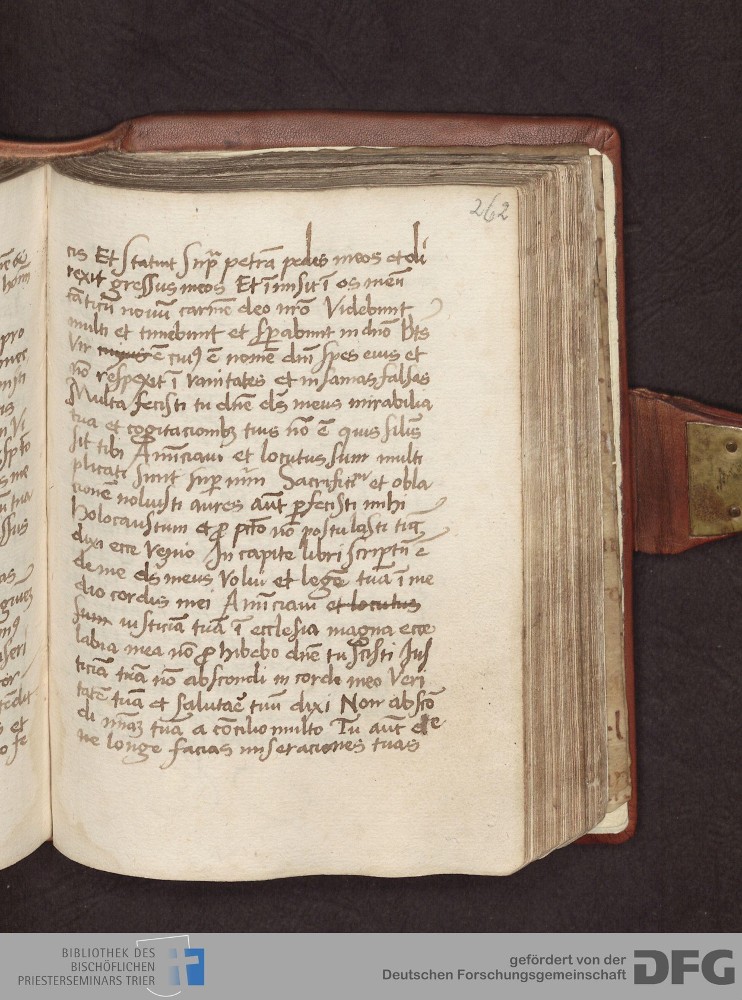 262
cis Et statuit sup̄ petrā pedes meos et di
rexit gressus meos Et ī misit ī os meū
cāticū nouū carmē deo nr̄o Videbunt
multi et timebunt et sp̄abunt in dn̄o Bt̄s
vir cuiꝰ ē nomē dn̄i spes eius et
nō respexit ī vanitates et insanias falsas
Multa fecisti tu dn̄e ds̄ meus mirabilia
tua et cogitacionibꝫ tuis nō ē quis silis
sit tibi Annūciaui et locutus sum multi
plicati sunt sup̄ nūm Sacrificiū et obla
cionē noluisti aures aūt ꝑfecisti mihi
Holocaustum et ꝓ pctō nō postulasti tūc
dixi ecce Venio In capite libri scriptū ē
de me ds̄ meus Volui et legē tuā ī me
dio cordis mei Annūciaui et locutus
sum iusticiā tuā ī ecclesia magna ecce
labia mea nō ꝓhibebo dn̄e tu scisti Jus
ticiā tuā nō abscondi in corde meo Veri
tatē tuā et salutaē tuū dixi Non abscō
di mīaꝫ tuā a cōcilio multo Tu aūt de
ne longe facias miseraciones tuas
BIBLIOTHEK DES
BISCHÖFLICHEN
PRIESTERSEMINARS TRIER
gefördert von der
Deutschen Forschungsgemeinschaft
DFG